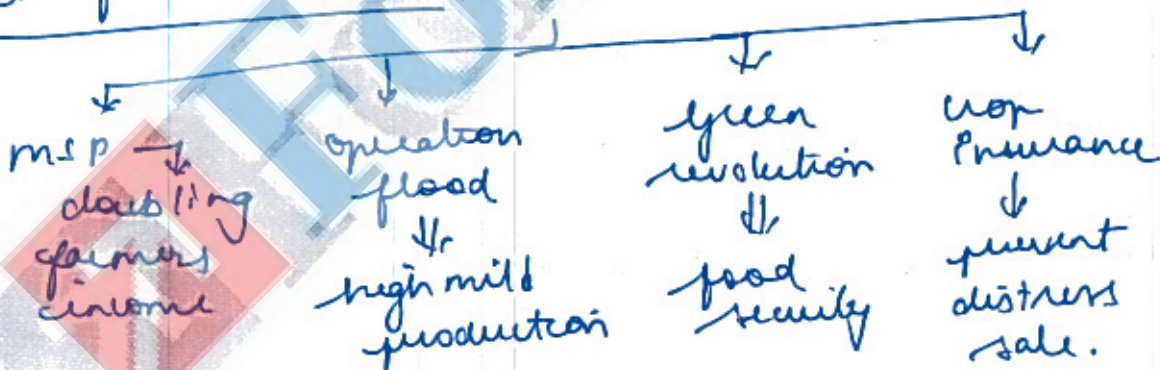 MSP → doubling farmers income
operation flood
↓
high mild production
Green revolution
⇓
food security
crop Insurance
↓
prevent distress sale.